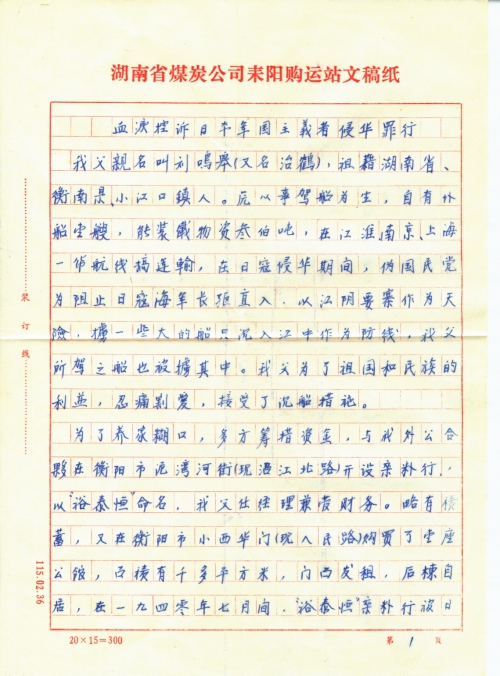 湖南省煤炭公司耒阳购运站文稿纸
血淚控诉日本军国主義者侵华罪行
我父親名叫刘鳴舉(又名治鶴)，祖籍湖南省、
衡南県、小江口鎮人。历以事驾船为生，自有外
船壹艘，能装載物资叁伯吨，在江淮南京、上海
一帶航线搞運輸，在日寇侵华期间，伪国民党
为阻止日寇海军长驱直入．以江阴要塞作为天
險，擄一些大的船只沉入江中作为防线，我父
所驾之船也被擄其中。我父为了祖国和民族的
利益，忍痛割爱，接受了沉船措施。
为了养家糊口，多方筹措资金，与我外公合
夥在衡阳市泥湾河街(现沿江北路)开设亲料行．，
以"裕泰恒"命名．我父任经理兼营财务。略有积
蓄，又在衡阳市小西华门(现人民路)购買了壹座
公馆，占積有千多平方米，门西发租，后棟自
居，在一九四零年七月间．"裕泰恒"亲料行被日
装订线
115.02.36
20×15=300
第1页